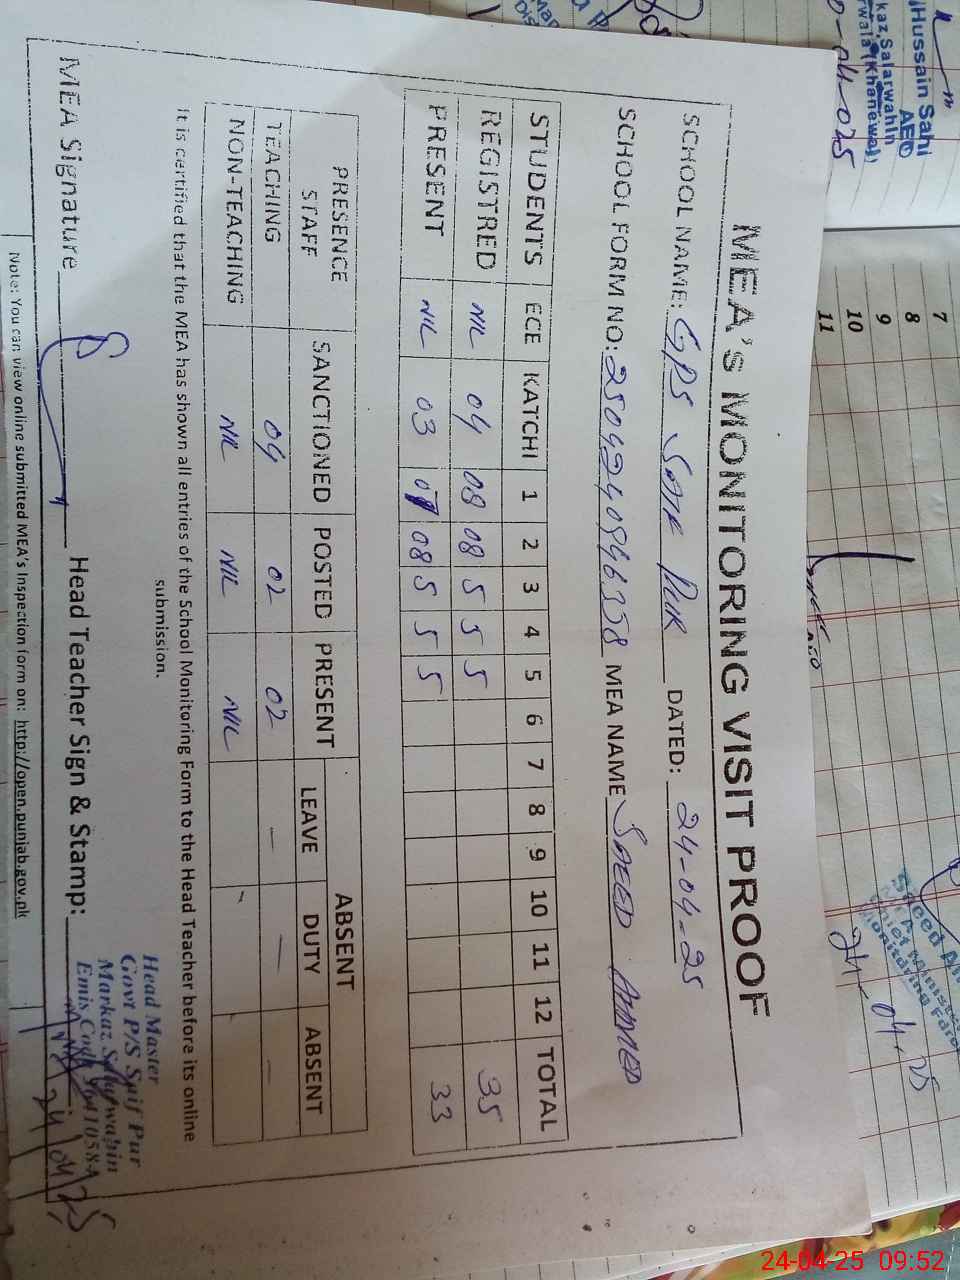 MEA's MONITORING VISIT PROOF
SCHOOL NAME: GPS Saif Pur DATED: 24-04-25
SCHOOL FORM NO: MEA NAME SAEED AHMED
STUDENTS ECE KATCHI 1 2 3 4 5 6 7 8 9 10 11 12 TOTAL
REGISTRED NIL 04 08 08 5 5 5 35
PRESENT NIL 03 07 08 5 5 5 33
PRESENCE STAFF SANCTIONED POSTED PRESENT ABSENT
LEAVE DUTY ABSENT
TEACHING 04 02 02 — — —
NON-TEACHING NIL NIL NIL
It is certified that the MEA has shown all entries of the School Monitoring Form to the Head Teacher before its online
submission.
MEA Signature Head Teacher Sign & Stamp:
Head Master
Govt P/S Saif Pur
Markaz Salarwahin
Emis Code
24/04/25
Note: You can view online submitted MEA's Inspection form on: http://open.punjab.gov.pk
Hussain Sahi
AEO
kaz, Salarwahin
rwala (Khanewal)
-04-025
7
8
9
10
11
Saeed
Chief Minister
Monitoring Force
24.04.25
24-04-25 09:52